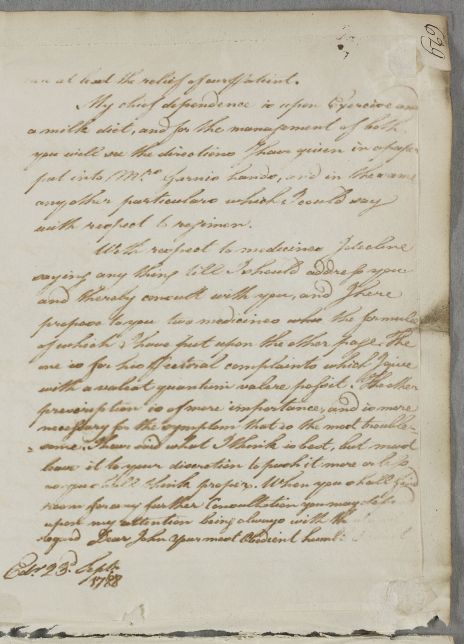 629
at least the relief of our patient.
My chief dependence is upon Exercise and
a milk diet, and for the management of both
you will see the directions I have given in a paper
put into Mrs. hands, and in the same
any other particulars which I could say
with respect to regimen.
With respect to medicines I decline
saying any thing till I should address you
and thereby consult with you, and I here
propose to you two medicines the formula
of which I have put upon the other page. The
one is for his Pectoral complaints which I give
with a valeat quantum valere potest. The other
prescription is of more importance, and is more
necessary for the symptom that is the most trouble-
=some. I have said what I think is best, but must
leave it to your discretion to push it more or less
as you shall think proper. When you shall find
room for any further Consultation you may
upon my attention being always with the
regard Dear John Your most Obedient humb
Edr. 23d. Sept.
1788